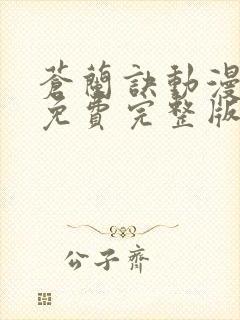 蒼蘭訣動漫
免費完整版
公子齊